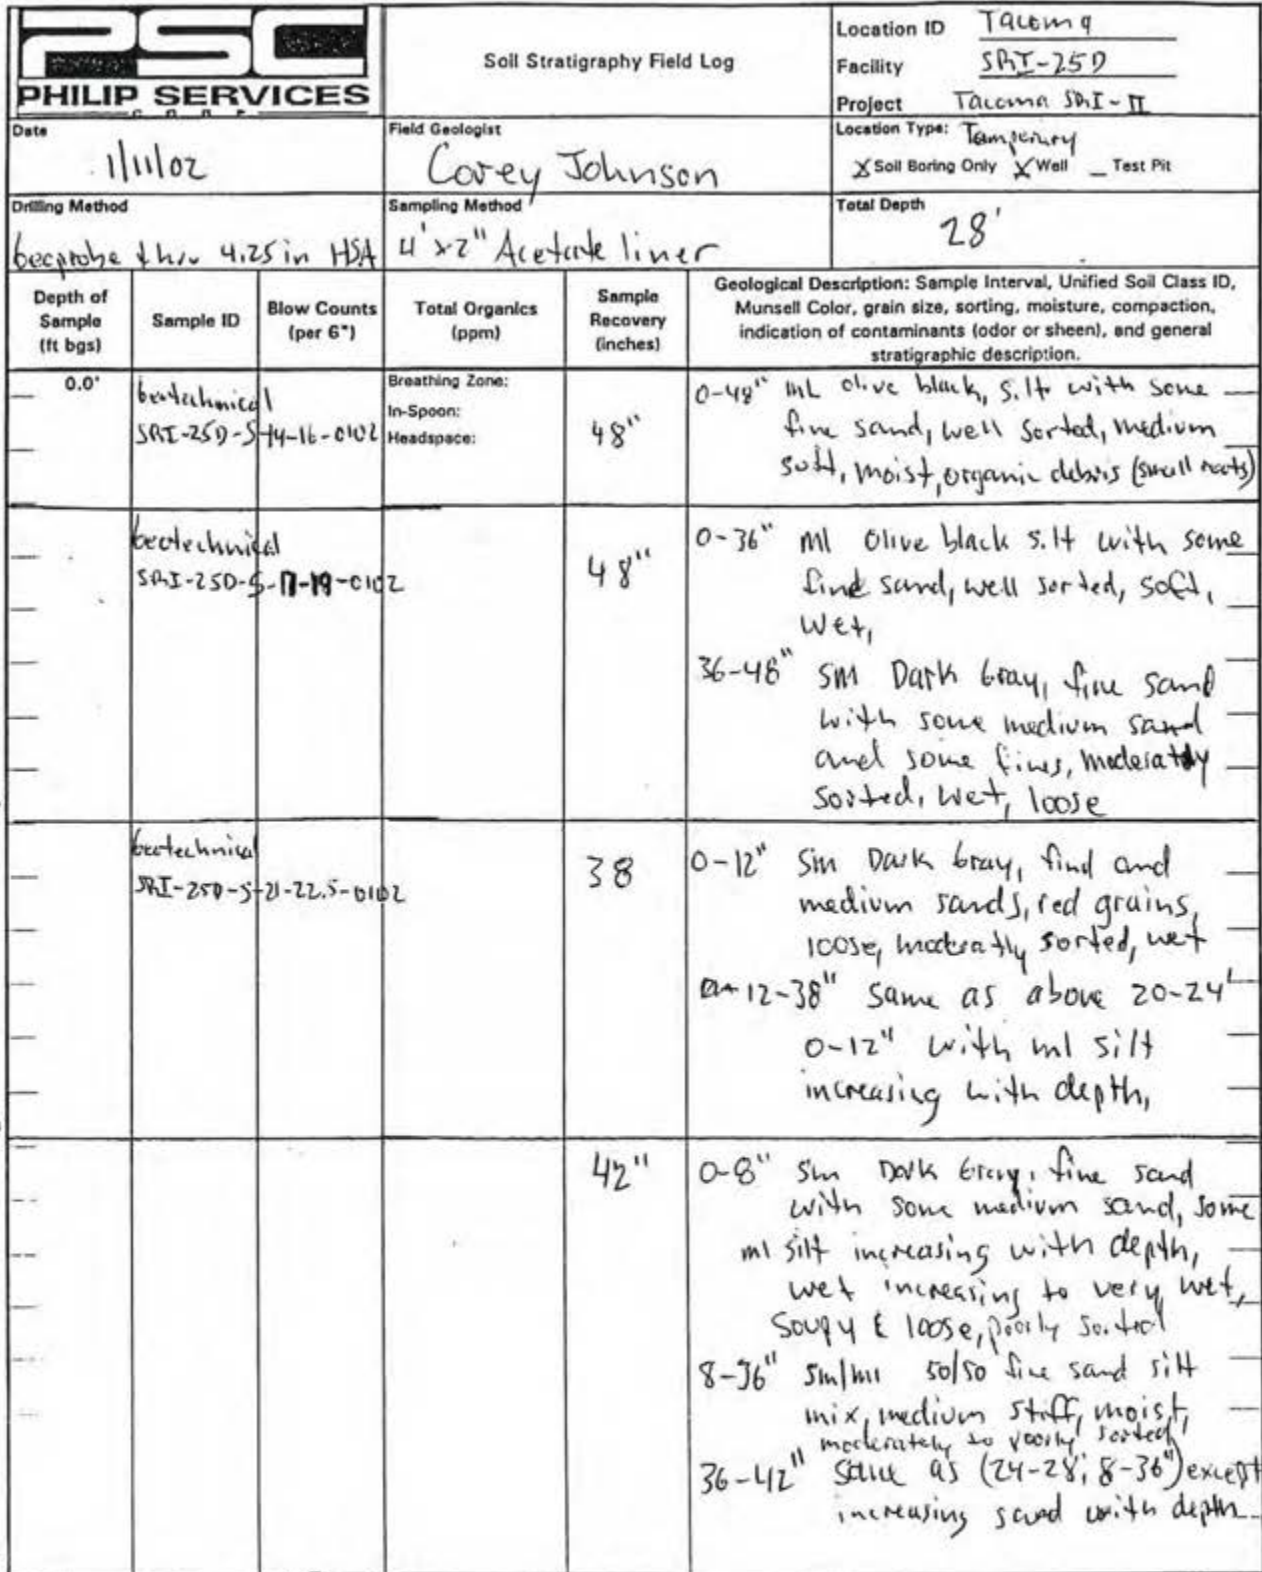 PSC
PHILIP SERVICES
CORP
Soil Stratigraphy Field Log
Location ID Tacoma
Facility SRI-25D
Project Tacoma SRI-II
Date
1/11/02
Field Geologist
Corey Johnson
Location Type: Temporary
X Soil Boring Only X Well _ Test Pit
Drilling Method
Geoprobe thru 4.25 in HSA
Sampling Method
4'x2" Acetate liner
Total Depth
28'
Depth of
Sample
(ft bgs)
Sample ID
Blow Counts
(per 6")
Total Organics
(ppm)
Sample
Recovery
(inches)
Geological Description: Sample Interval, Unified Soil Class ID,
Munsell Color, grain size, sorting, moisture, compaction,
indication of contaminants (odor or sheen), and general
stratigraphic description.
0.0'
Geotechnical
SRI-25D-S-14-16-0102
Breathing Zone:
In-Spoon:
Headspace:
48"
0-48" ML olive black, silt with some
fine sand, well sorted, medium
soft, moist, organic debris (small roots)
Geotechnical
SRI-25D-S-17-19-0102
48"
0-36" ml Olive black silt with some
fine sand, well sorted, soft,
wet,
36-48" SM Dark Gray, fine sand
with some medium sand
and some fines, moderatly
sorted, wet, loose
Geotechnical
SRI-25D-S-21-22.5-0102
38
0-12" Sm Dark Gray, find and
medium sands, red grains,
loose, moderatly sorted, wet
12-38" Same as above 20-24'
0-12" with ml silt
increasing with depth,
42"
0-8" Sm Dark Gray, fine sand
with some medium sand, some
ml silt increasing with depth,
wet increasing to very wet,
Soupy & loose, poorly sorted
8-36" Sm/ml 50/50 fine sand silt
mix, medium stiff, moist,
moderately to poorly sorted
36-42" Same as (24-28', 8-36") except
increasing sand with depth